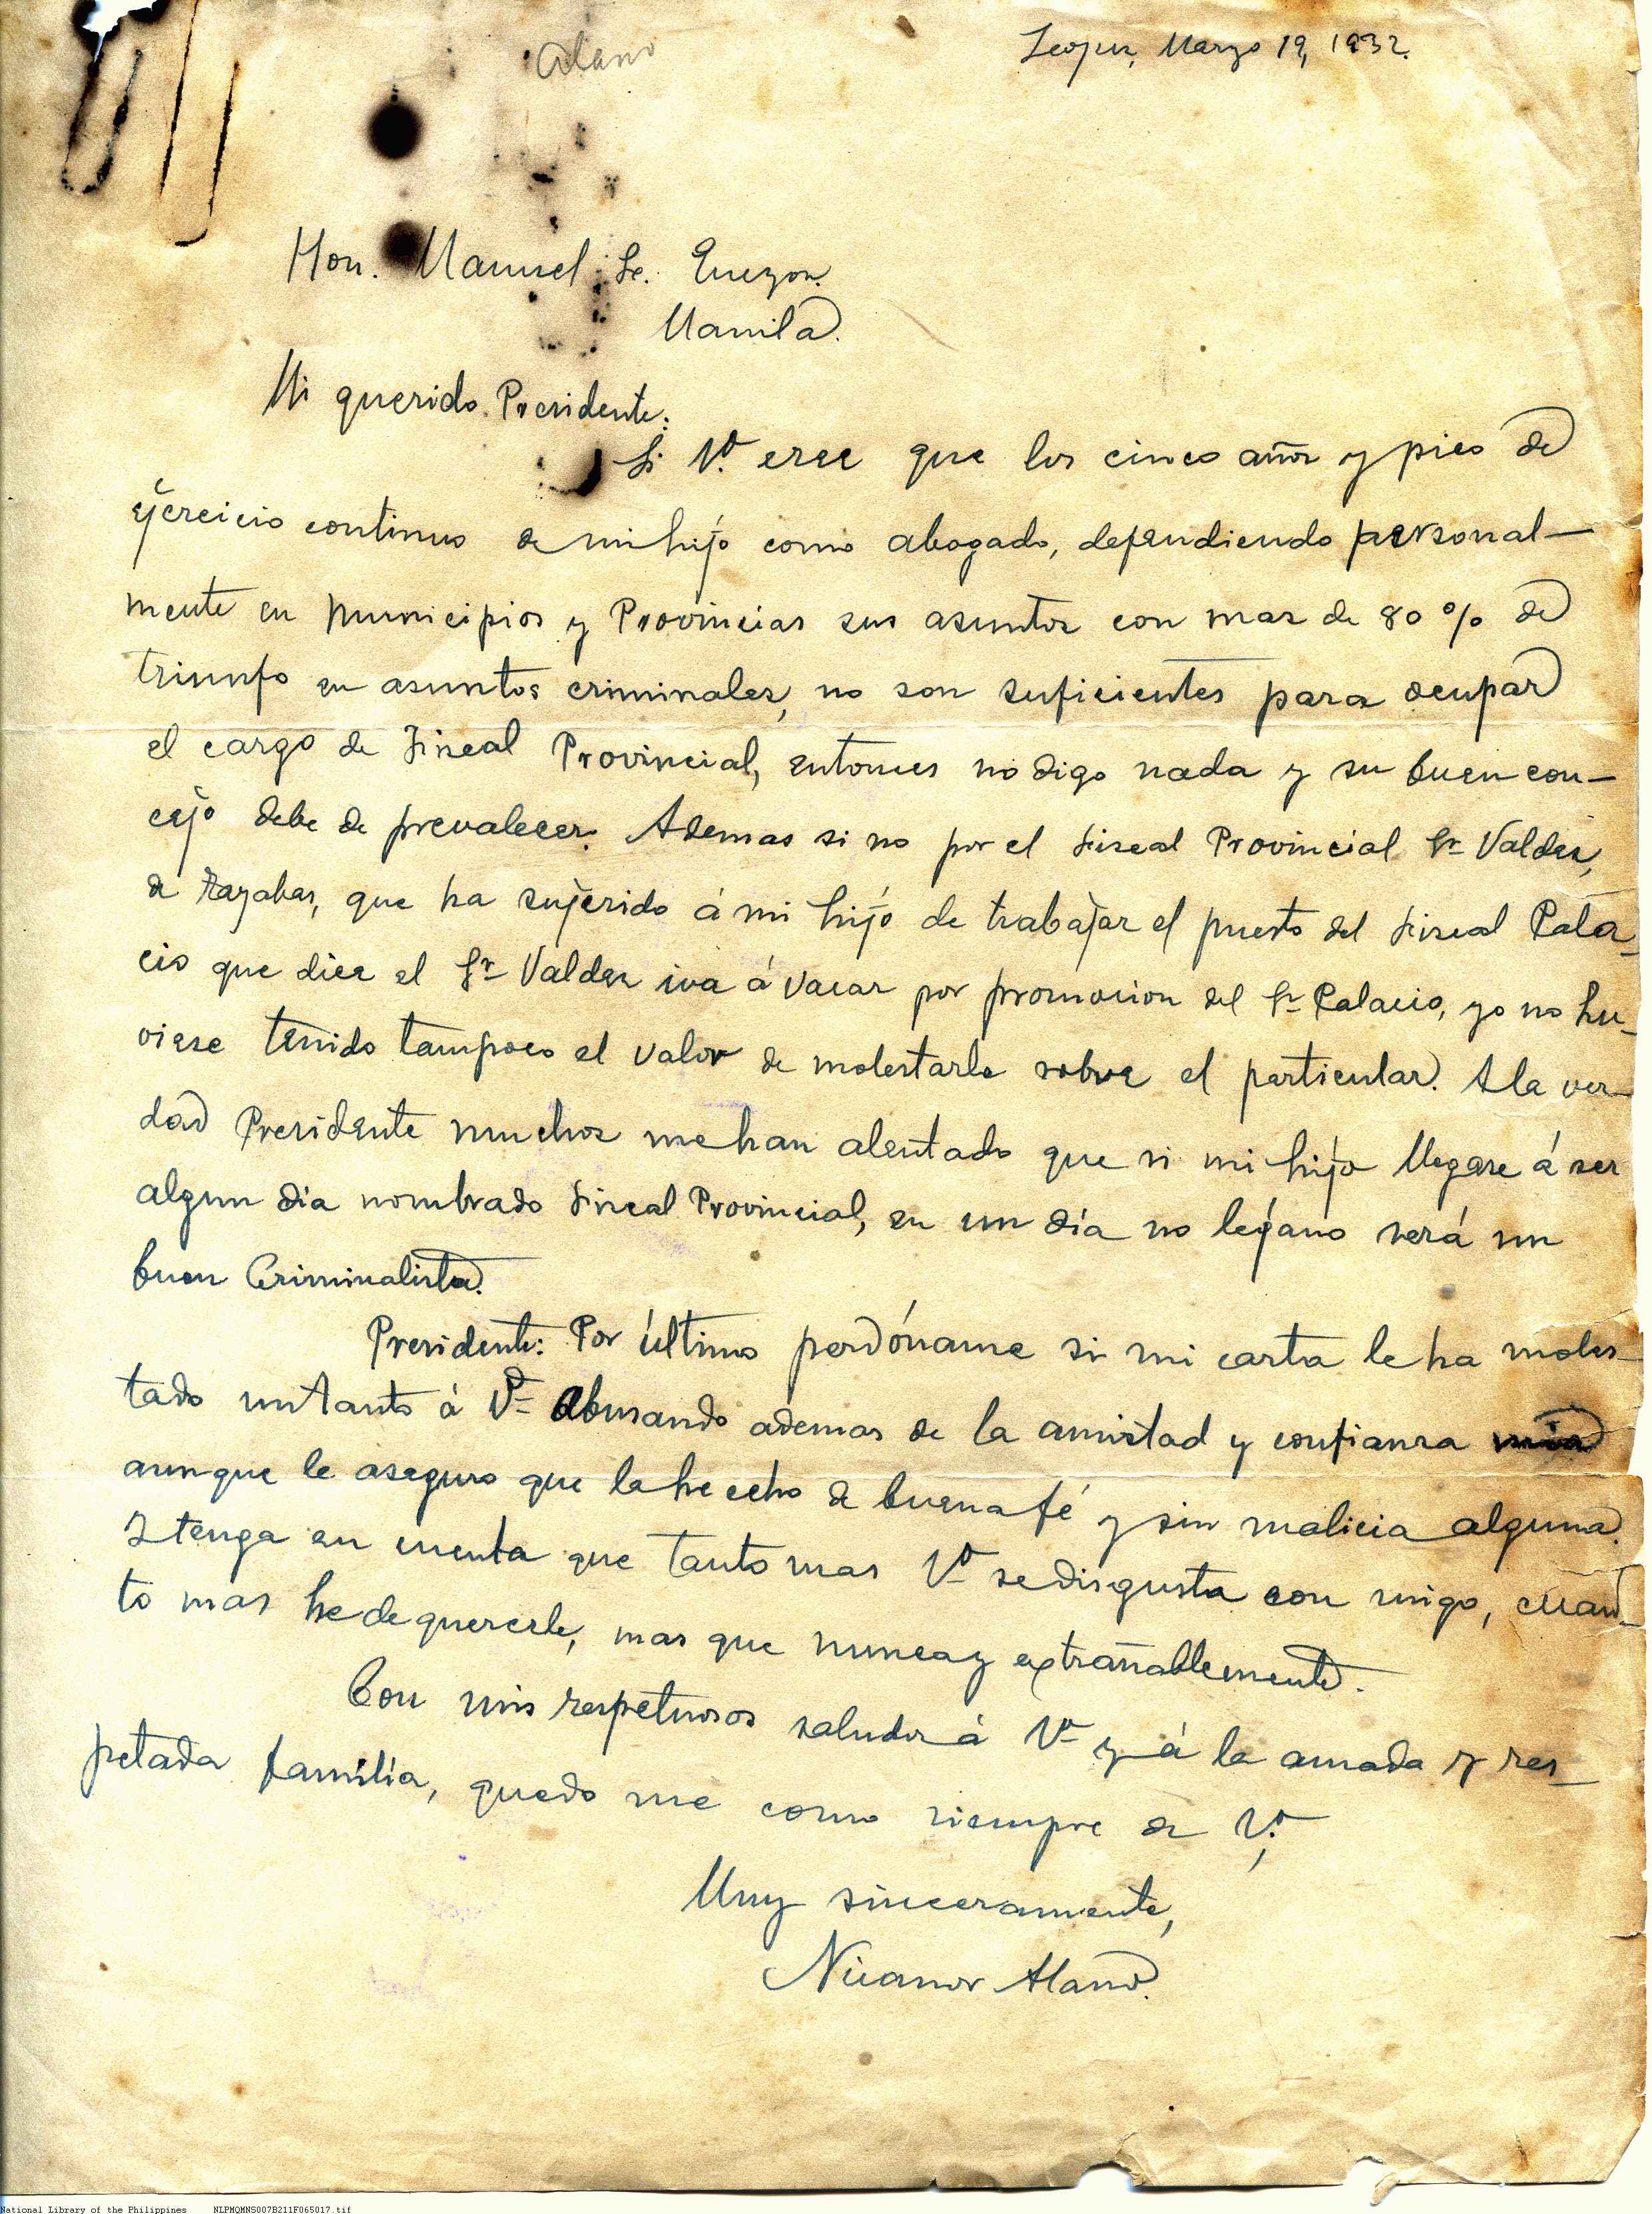 Alano
Lopez, Marzo 19, 1932.
Hon. Manuel L. Quezon.
Manila.
Mi querido Presidente:
Si Vd. cree que los cinco años y pico de
ejercicio continuo de mi hijo como abogado, defendiendo personal-
mente en municipios y Provincias sus asuntos con mas de 80% de
triunfo en asuntos criminales, no son suficientes para ocupar
el cargo de Fiscal Provincial, entonces no digo nada y su buen con-
cejo debe de prevalecer. Ademas si no por el Fiscal Provincial Sr. Valdes,
de Tayabas, que ha sujerido á mi hijo de trabajar el puesto del Fiscal Pala-
cio que dice el Sr. Valdes iva á vacar por promocion del Sr. Palacio, yo no hu-
viese tenido tampoco el valor de molestarle sobre el particular. A la ver-
dad Presidente muchos me han alentado que si mi hijo llegase á ser
algun dia nombrado Fiscal Provincial, en un día no lejano será un
buen Criminalista.
Presidente: Por último perdóname si mi carta le ha moles-
tado un tanto á Vd. Abusando ademas de la amistad y confianza
aunque le aseguro que la he echo de buena fé y sin malicia alguna.
Y tenga en cuenta que tanto mas Vd. se disgusta con migo, cuan-
to mas he de quererle, mas que nunca y extrañablemente.
Con mis respetuosos saludos á Vd. y á la amada y res-
petada família, quedo me como siempre de Vd.,
Muy sinceramente,
Nicanor Alano.
National Library of the Philippines NLPMQMNS007B211F065017.tif